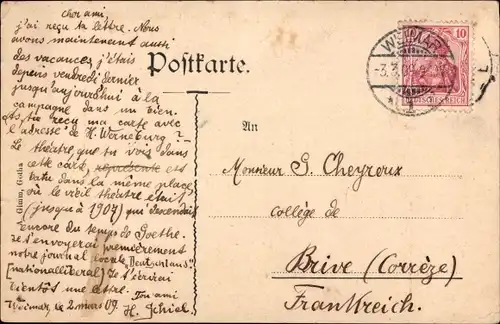 Cher ami,
j'ai reçu ta lettre. Nous
avons maintenent aussi
des vacances, j'étais
depuis vendredi dernier
jusqu'aujourd'hui à la
campagne dans un bien.
As-tu reçu ma carte avec
l'adresse de H. Werneburg?
Le théâtre que tu vois dans
cette carte, représente est
batu dans la même place,
où le vieil théâtre était
(jusqu'à 1907) qui descendait
encore du temps de Goethe.
Je t'enverai premièrement
notre journal locale „Deutschland"
[nationalliberal] Je t'écrirai
bientôt une lettre. Ton ami
Weimar, le 2. mars 09. H. Schiel.
Postkarte.
WEIMAR
-3.3.09.
10
DEUTSCHES REICH
An
Monsieur G. Cheyroux
collège de
Brive (Corrèze)
Frankreich.
Glimm, Gotha